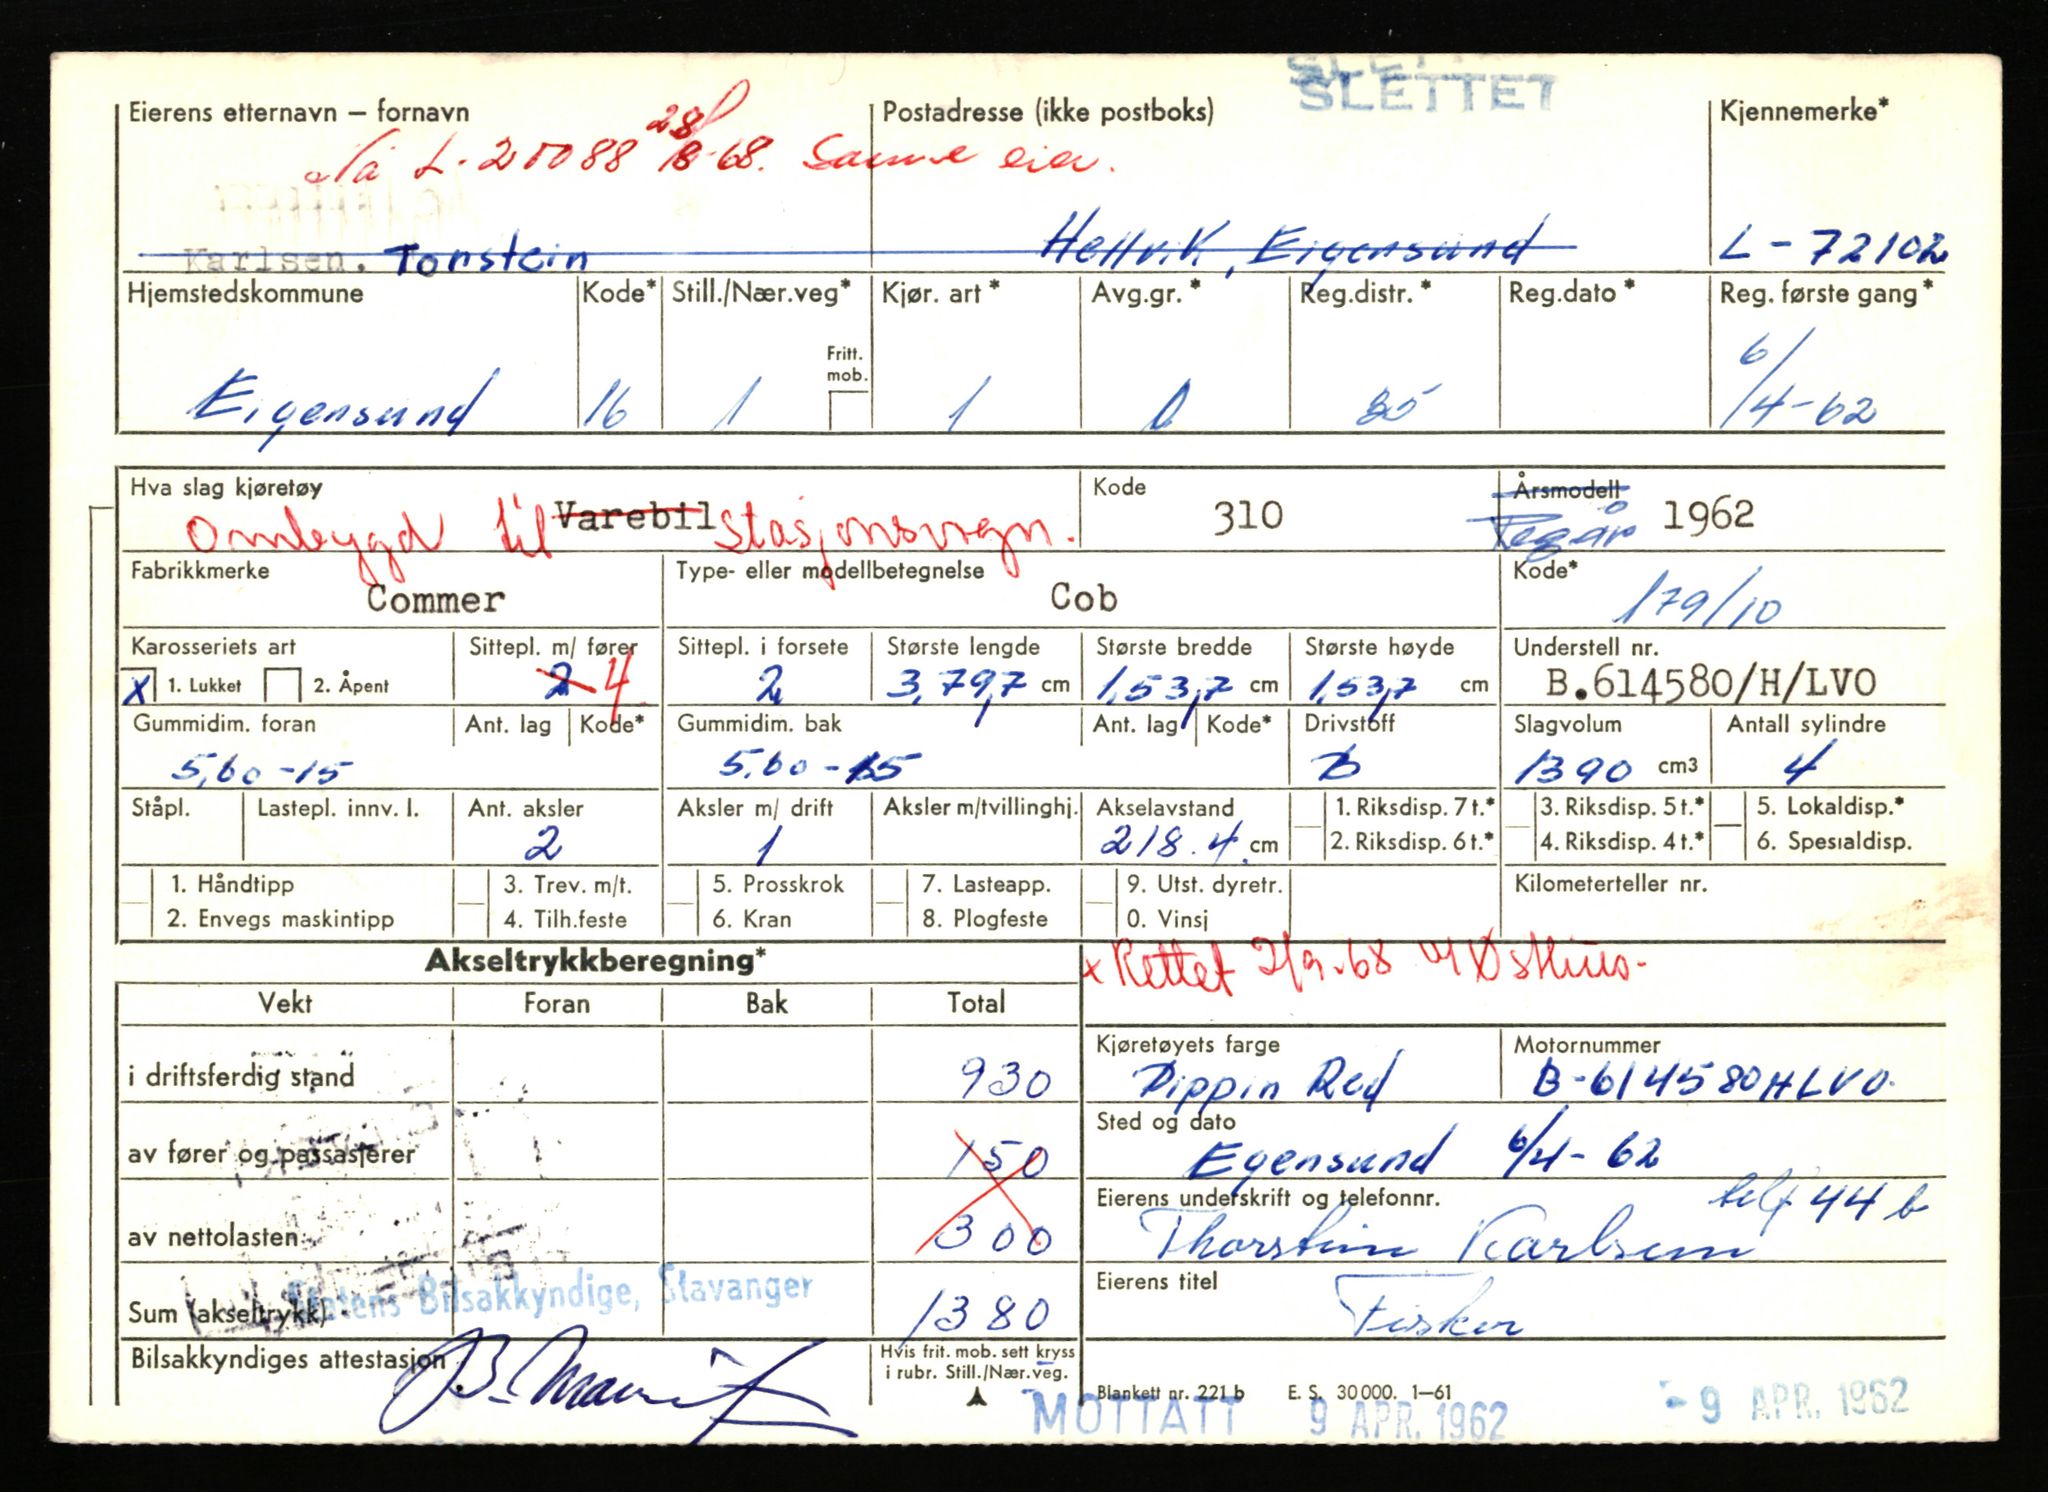 SLETTET
Eierens etternavn – fornavn Postadresse (ikke postboks) Kjennemerke*
Nå L-20088 28/8-68. Samme eier.
Karlsen. Torstein Hellvik, Eigersund L-72102
Hjemstedskommune Kode* Still./Nær.veg* Kjør. art* Avg.gr.* Reg.distr.* Reg.dato* Reg. første gang*
Fritt. mob.
Eigersund 16 1 1 35 6/4-62
Hva slag kjøretøy Kode Årsmodell
Ombygd til Varebil Stasjonsvogn. 310 Regår 1962
Fabrikkmerke Type- eller modellbetegnelse Kode*
Commer Cob 179/10
Karosseriets art Sittepl. m/ fører Sittepl. i forsete Største lengde Største bredde Største høyde Understell nr.
X 1. Lukket 2. Åpent 2 4 2 3,79,7 cm 1,53,7 cm 1,53,7 cm B.614580/H/LVO
Gummidim. foran Ant. lag Kode* Gummidim. bak Ant. lag Kode* Drivstoff Slagvolum Antall sylindre
5,60-15 5,60-15 B 1390 cm3 4
Ståpl. Lastepl. innv. l. Ant. aksler Aksler m/ drift Aksler m/tvillinghj. Akselavstand 1. Riksdisp. 7t.* 3. Riksdisp. 5t.* 5. Lokaldisp.*
2 1 218.4 cm 2. Riksdisp. 6t.* 4. Riksdisp. 4t.* 6. Spesialdisp.
1. Håndtipp 3. Trev. m/t. 5. Prosskrok 7. Lasteapp. 9. Utst. dyretr. Kilometerteller nr.
2. Envegs maskintipp 4. Tilh.feste 6. Kran 8. Plogfeste 0. Vinsj
Akseltrykkberegning* x Rettet 2/9-68 Østhus.
Vekt Foran Bak Total
Kjøretøyets farge Motornummer
i driftsferdig stand 930 Pippin Red B-614580HLVO.
Sted og dato
av fører og passasjerer 150 Egersund 6/4-62
Eierens underskrift og telefonnr. telf 44 b
av nettolasten 300 Thorstein Karlsen
Eierens titel
Statens Bilsakkyndige, Stavanger
Sum (akseltrykk) 1380 Fisker
Bilsakkyndiges attestasjon Hvis frit. mob. sett kryss i rubr. Still./Nær.veg.
Blankett nr. 221 b E. S. 30000. 1-61
MOTTATT 9 APR. 1962 -9 APR. 1962